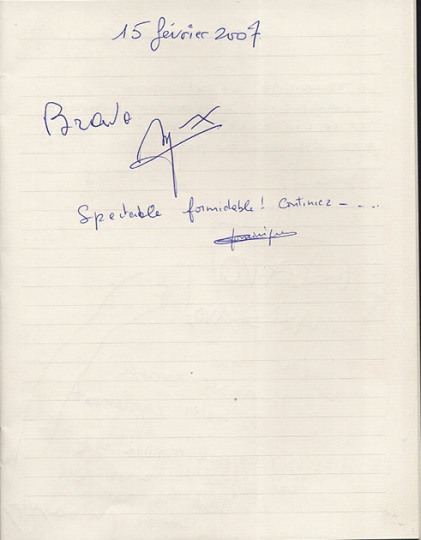 15 février 2007
Bravo
Spectacle formidable! Continuez - ...